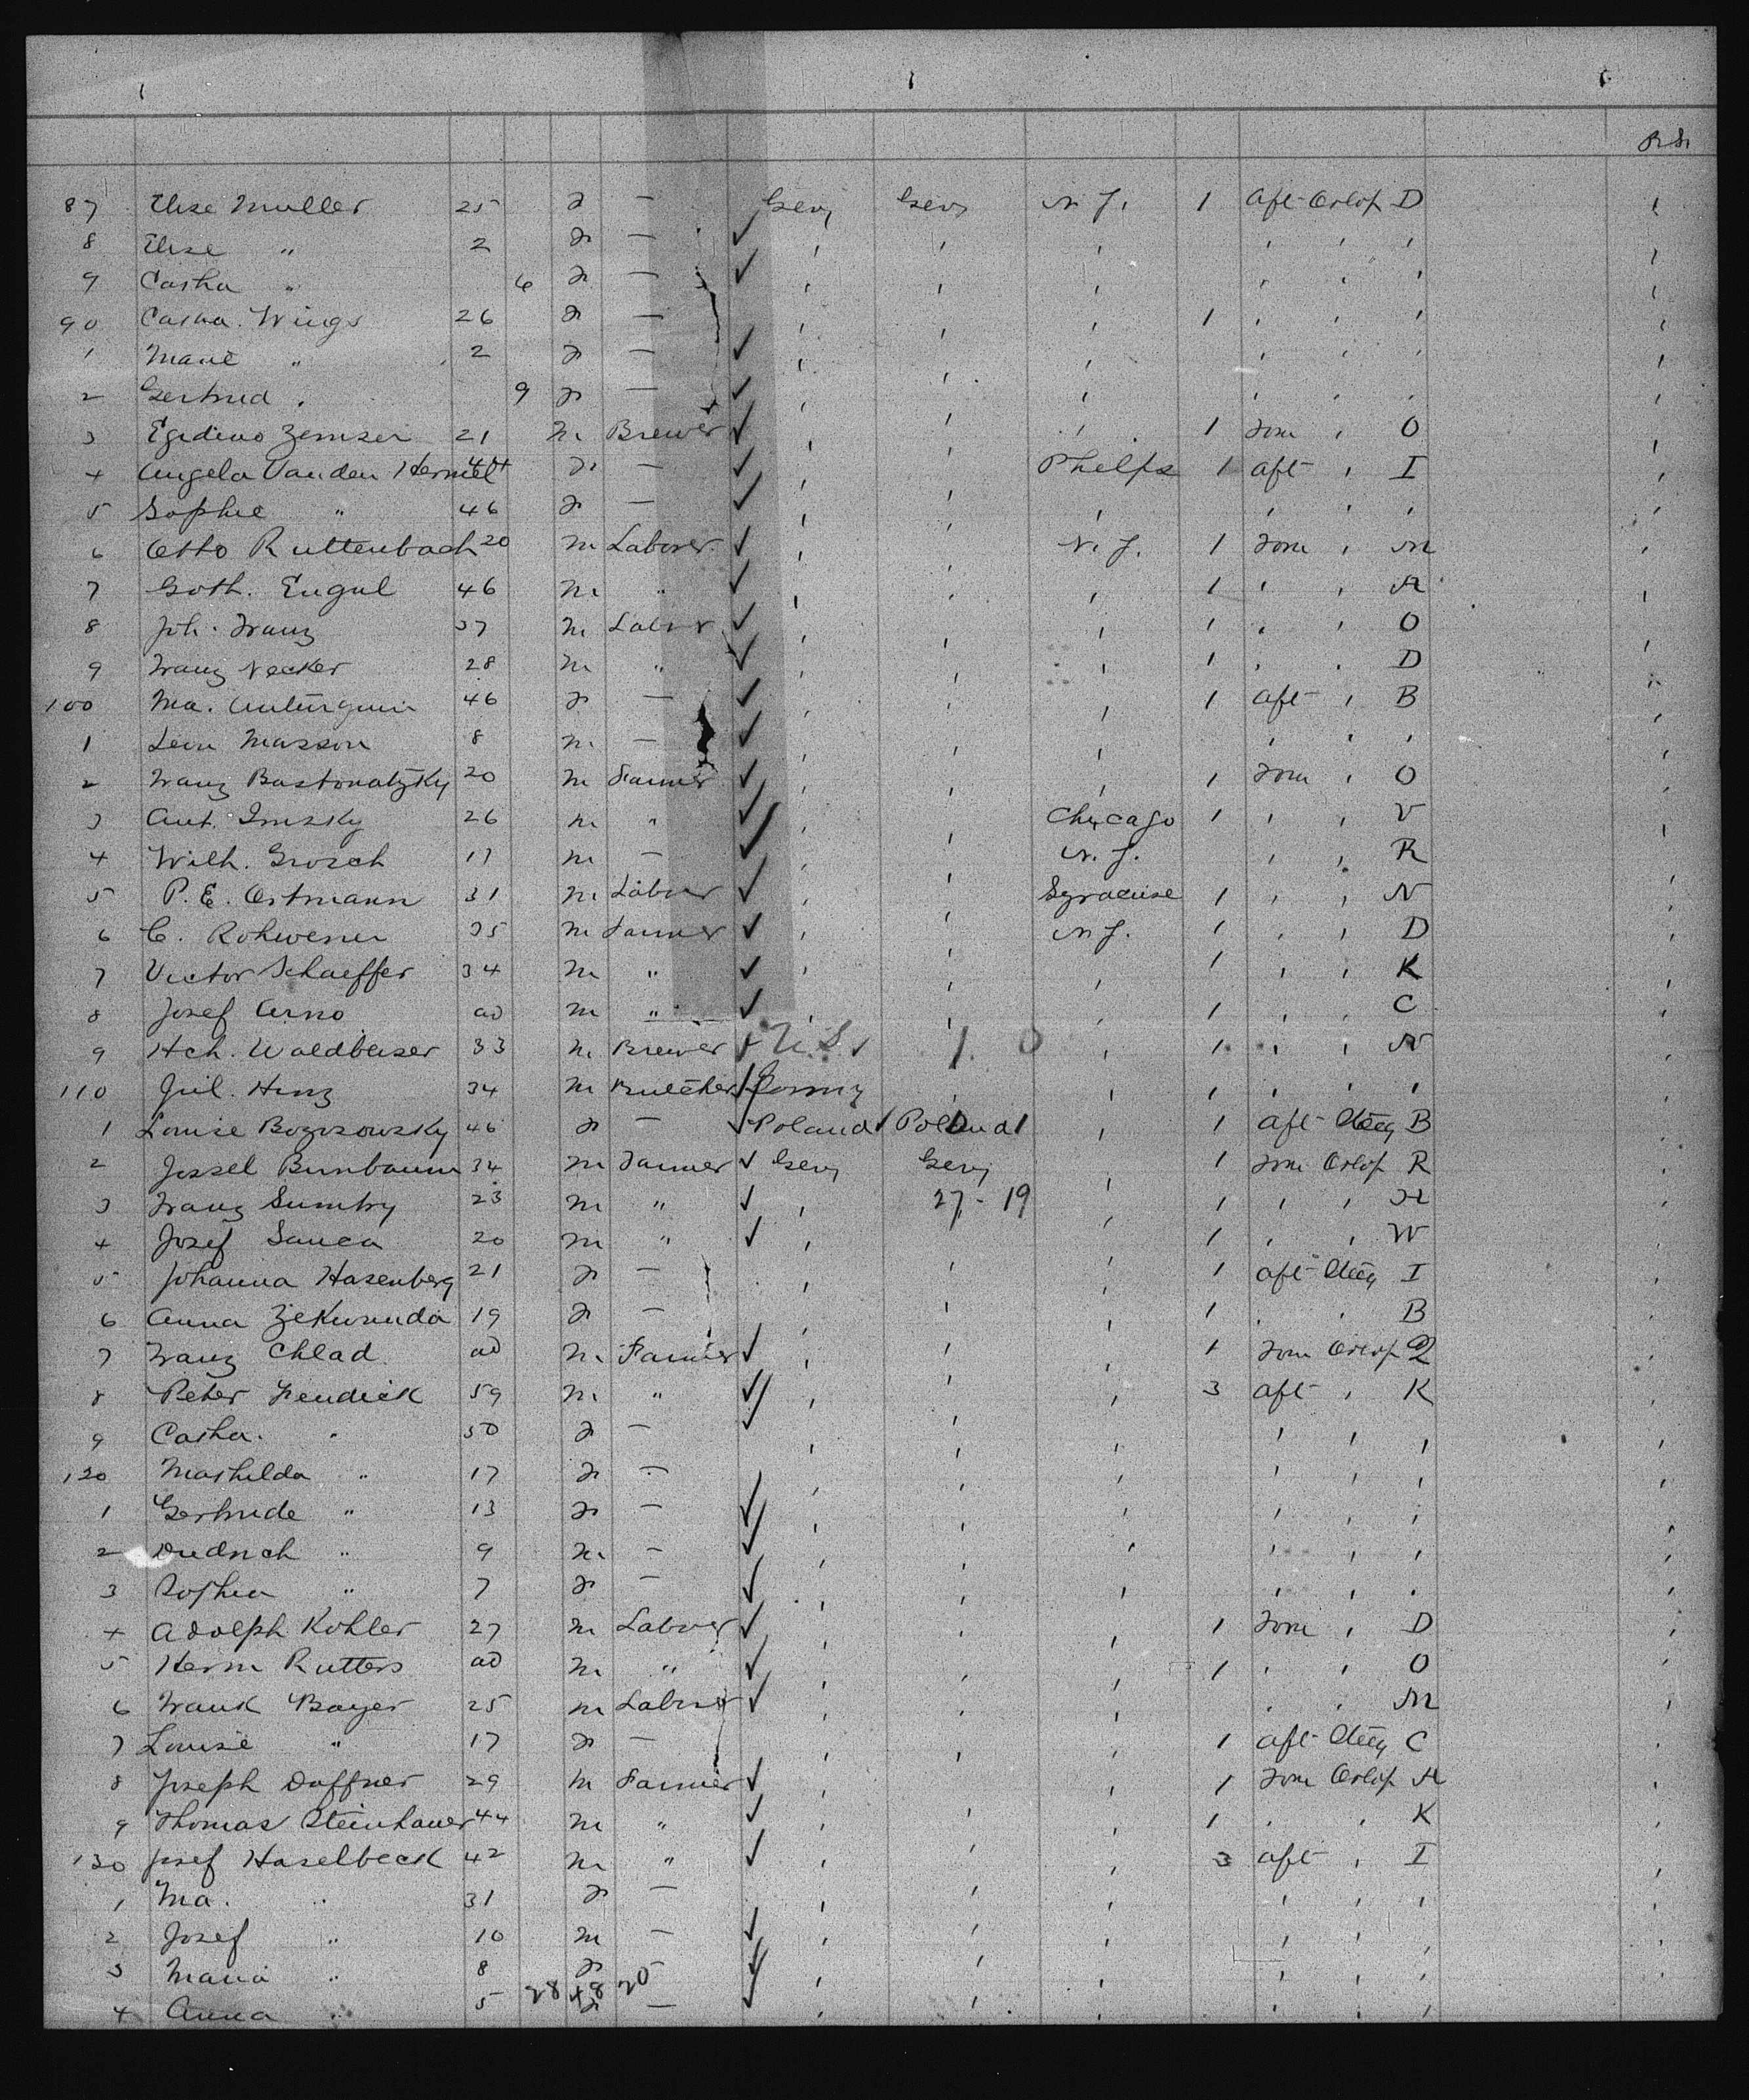 87 Elise Muller 25 F — Gery Gery N. Y. 1 Aft Orlop D
8 Elise " 2 F — ✓
9 Catha " 6 F — ✓
90 Catha. Wings 26 F — 1
1 Marie " 2 F — ✓
2 Gertrud 9 F — ✓
3 Egidius 21 M Brewer ✓ 1 For O
4 Angela Vanden Hermel F — ✓ Phelps 1 Aft I
5 Sophie " 46 F — ✓
6 Otto Ruttenbach 20 M Laborer ✓ N. Y. 1 For M
7 Goth. Engul 46 M " ✓ 1 H
8 Joh. Franz 37 M Labor ✓ 1 O
9 Franz Necker 28 M " ✓ 1 D
100 Ma. 46 F — ✓ 1 Aft B
1 Leon Masson 8 M — ✓
2 Franz Bastonatzky 20 M Farmer ✓ 1 For O
3 Ant. 26 M " ✓ Chycago 1 V
4 Wilh. Grosch 17 M — ✓ N. Y. R
5 P. E. Ostmann 31 M Labor ✓ Syracuse 1 N
6 C. 35 M Farmer ✓ N Y. 1 D
7 Victor Schaeffer 34 M " ✓ 1 K
8 Josef Arno ad M " ✓ 1 C
9 Hch. Waldbeser 33 M Brewer U.S. 1 N
110 Jul. Hinz 34 M Butcher 1
1 Louise 46 F — ✓ Poland Poland 1 Aft B
2 Jossel Birnbaum 34 M Farmer ✓ Gery Gery 1 For Orlop R
3 Franz 23 M " ✓ 27 - 19 1 H
4 Josef Sauca 20 M " ✓ 1 W
5 Johanna Hasenberg 21 F — 1 Aft I
6 Anna 19 F — 1 B
7 Franz Chlad ad M Farmer ✓ 1 For Orlop
8 Peter Hendick 59 M " ✓ 3 Aft K
9 Catha. 50 F — ✓
120 Mathilda " 17 F —
1 Gertrude " 13 F — ✓
2 Diedrich " 9 M — ✓
3 Sophia " 7 F — ✓
4 Adolph Kohler 27 M Labor ✓ 1 For D
5 Herm Rutters ad M " ✓ 1 O
6 Frank Bayer 25 M Labor ✓ M
7 Louise " 17 F — 1 Aft C
8 Joseph Daffner 29 M Farmer ✓ 1 For Orlop H
9 Thomas Steinhauer 44 M " ✓ 1 K
130 Josef Haselbeck 42 M " ✓ 3 Aft I
1 Ma. " 31 F —
2 Josef " 10 M — ✓
3 Maria " 8 F — ✓
28 48 20
4 Anna " 5 F — ✓